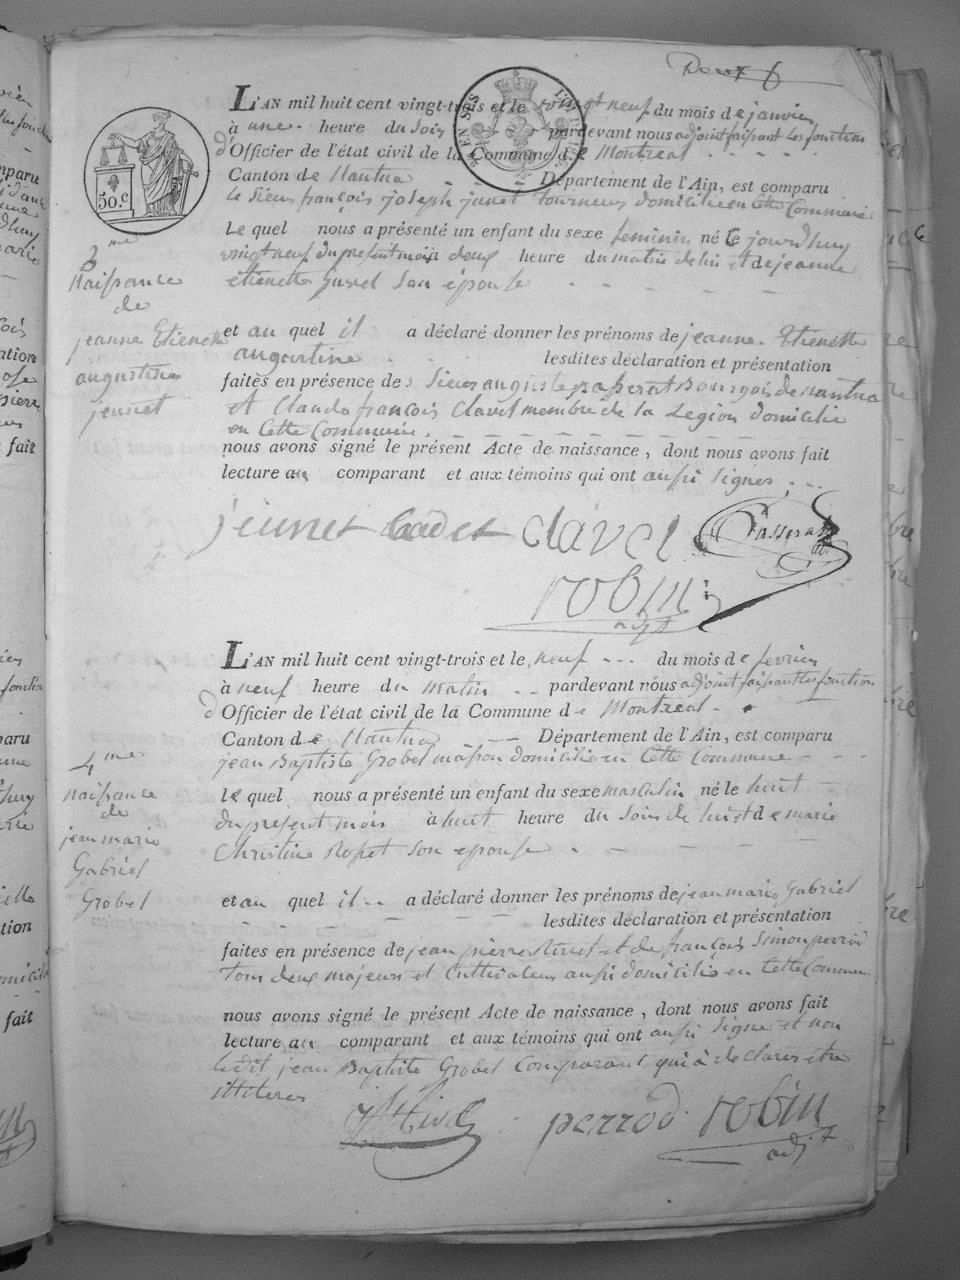 L'AN mil huit cent vingt-trois et le vingt neuf du mois de janvier
à une heure du soir pardevant nous adjoint faisant les fonction
d'Officier de l'état civil de la Commune de Montreal
Canton de Nantua Département de l'Ain, est comparu
le sieur françois joseph jeunet tourneur domicilié en cette Commune
Le quel nous a présenté un enfant du sexe feminin né le jourdhuy
vingt neuf du present mois deux heure du matin de lui et de jeanne
etiennette son épouse
3me
Naissance
de
jeanne Etiennette
augustine
jeunet
et au quel il a déclaré donner les prénoms de jeanne Etiennette
augustine lesdites déclaration et présentation
faites en présence des sieur auguste passerat Bourgois de nantua
et Claude françois Clavel membre de la Legion domicilié
en cette Commune.
nous avons signé le présent Acte de naissance, dont nous avons fait
lecture au comparant et aux témoins qui ont aussi signes
jeunet Cadet Clavel Passerat
robin
adjt
L'AN mil huit cent vingt-trois et le neuf du mois de fevrier
à neuf heure du matin pardevant nous adjoint faisant les fonction
d Officier de l'état civil de la Commune de Montreal
Canton de Nantua Département de l'Ain, est comparu
jean Baptiste Grobel masson domicilié en cette Commune
4me
naissance
de
jean marie
Gabriel
Grobel
le quel nous a présenté un enfant du sexe masculin né le huit
du present mois à huit heure du soir de lui et de marie
Christine Rosset son epouse
et au quel il a déclaré donner les prénoms de jean marie Gabriel
lesdites déclaration et présentation
faites en présence de jean pierre et de françois Simon perrod
tous deux majeurs et Cultivateurs aussi domicilié en cette Commune
nous avons signé le présent Acte de naissance, dont nous avons fait
lecture au comparant et aux témoins qui ont aussi signe et non
ledit jean Baptiste Grobel Comparant qui à declares etre
illiteres
perrod robin
adjt
50.c